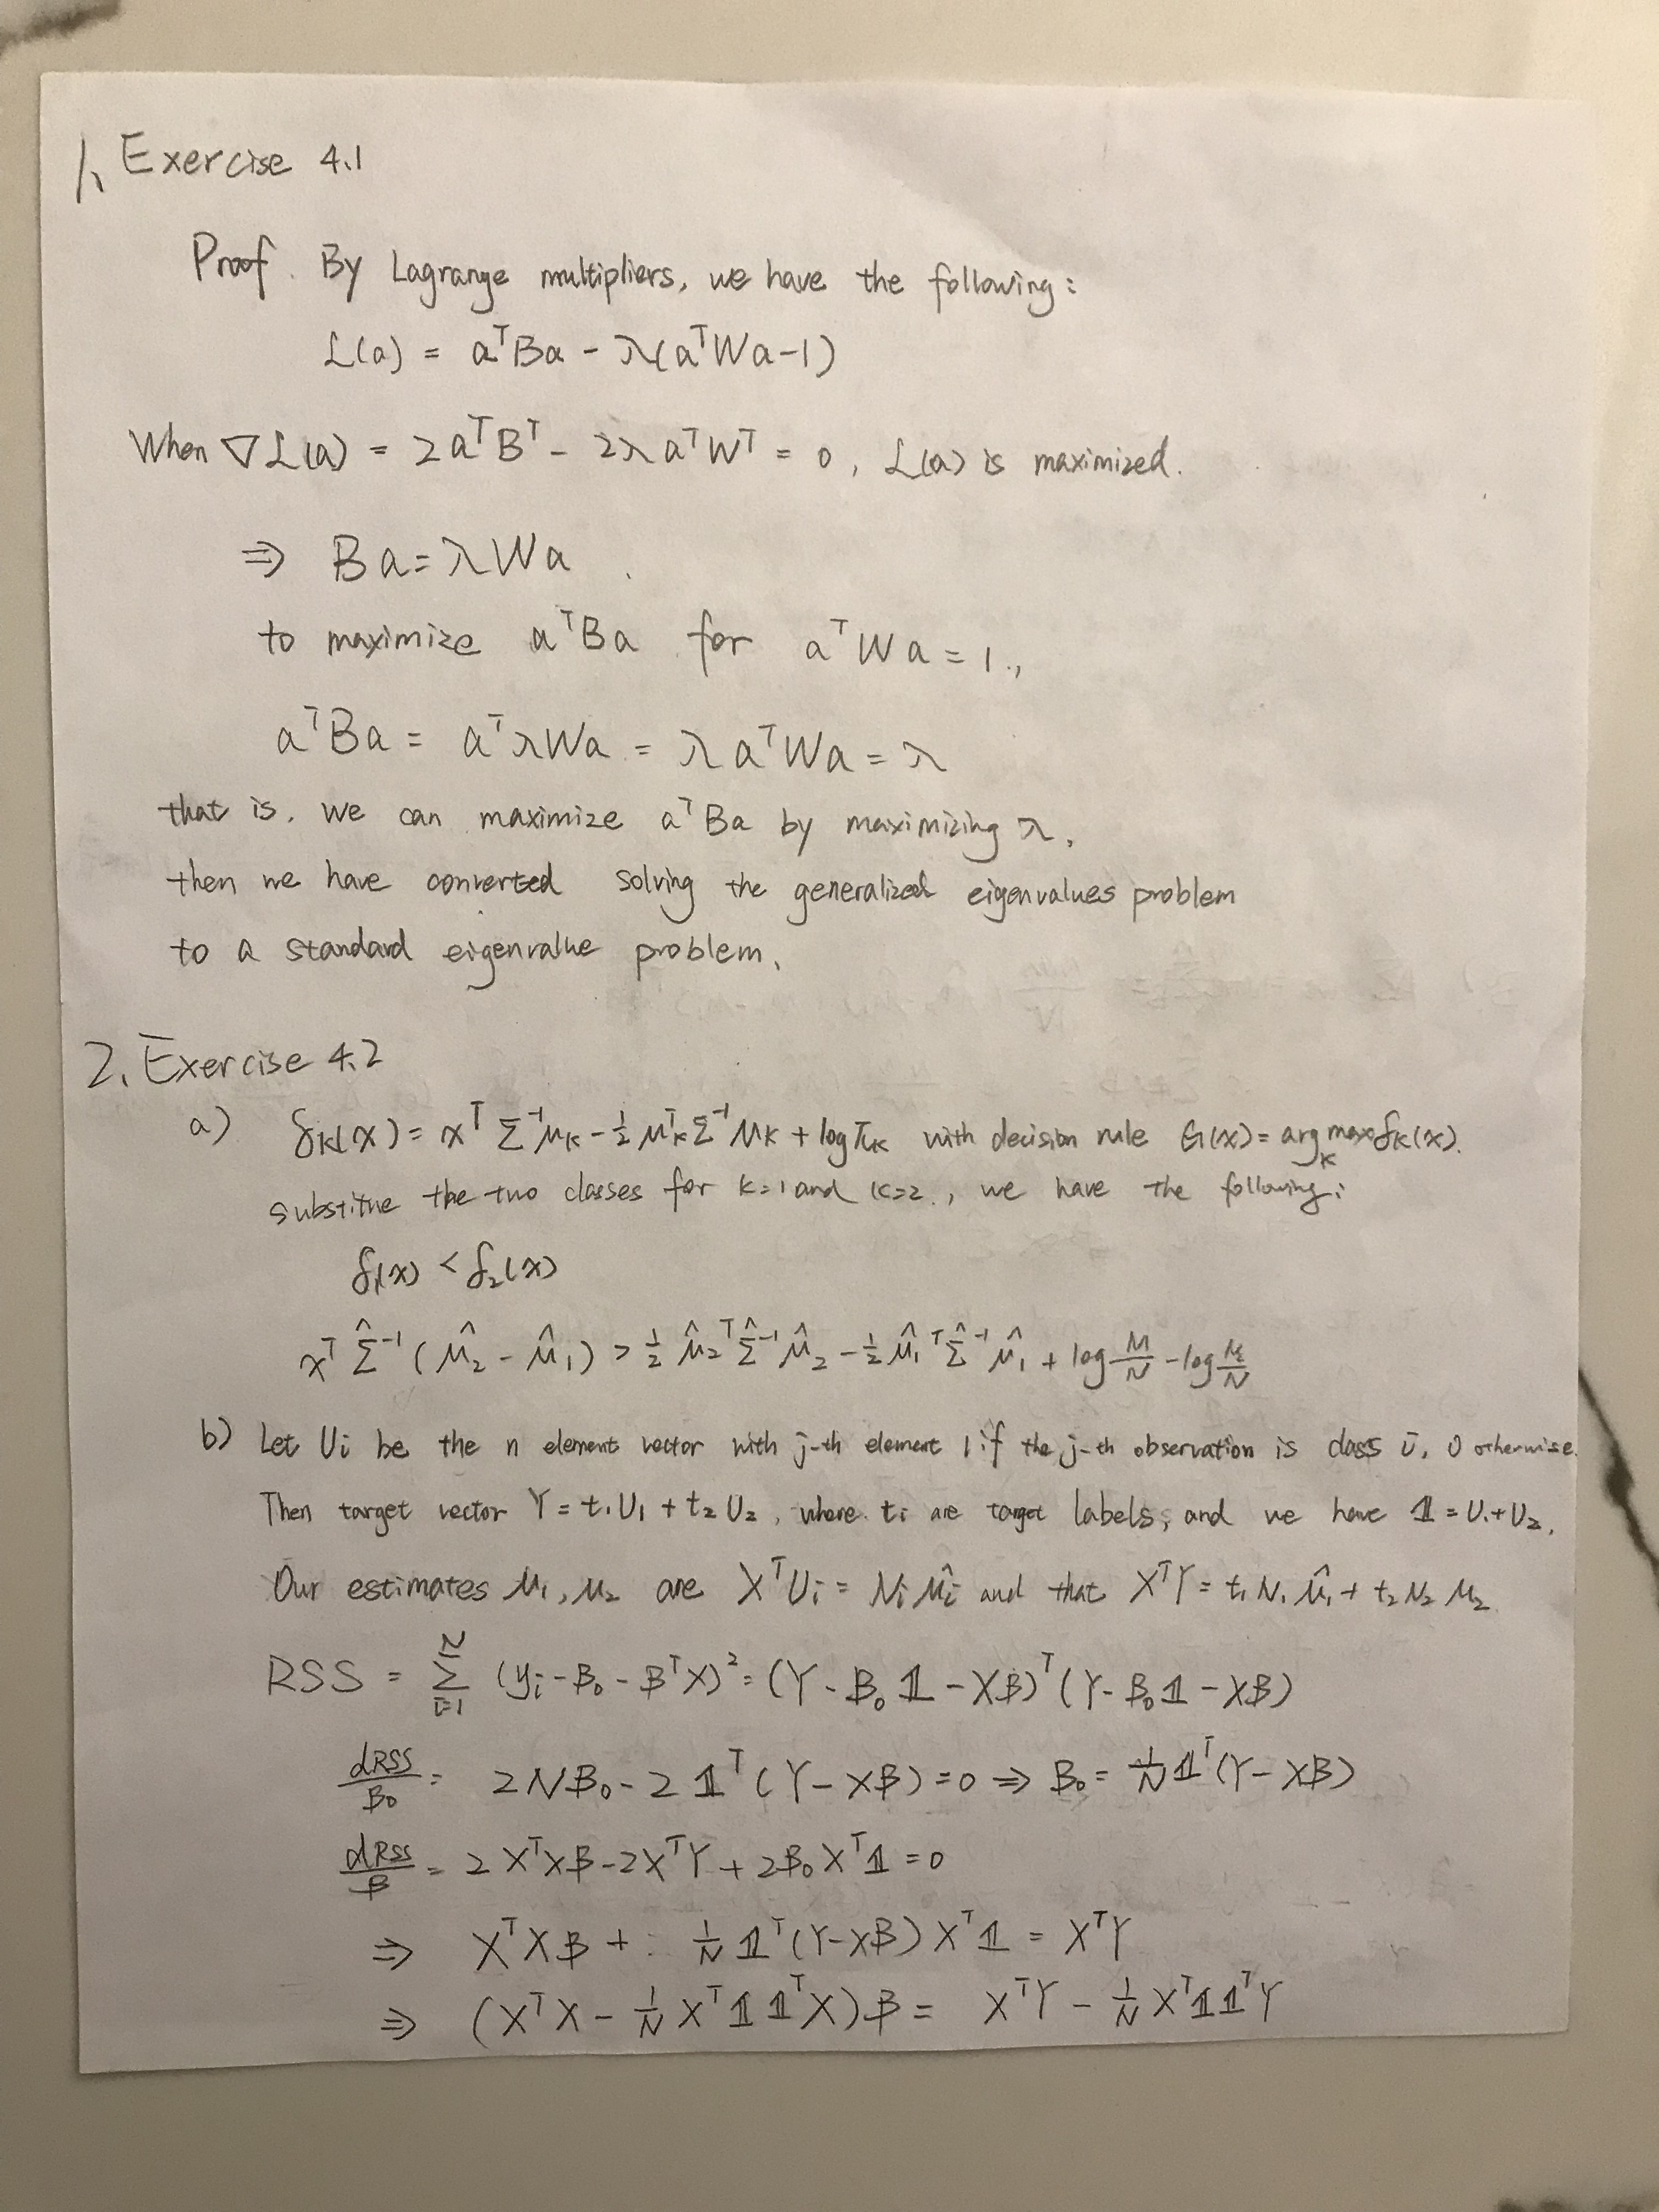 1、Exercise 4.1
Proof. By Lagrange multipliers, we have the following:
ℒ(a) = aᵀBa - λ(aᵀWa-1)
When ∇ℒ(a) = 2aᵀBᵀ - 2λaᵀWᵀ = 0, ℒ(a) is maximized.
⇒ Ba = λWa
to maximize aᵀBa for aᵀWa = 1.,
aᵀBa = aᵀλWa = λaᵀWa = λ
that is. we can maximize aᵀBa by maximizing λ.
then we have converted solving the generalized eigenvalues problem
to a standard eigenvalue problem.
2、Exercise 4.2
a) δK(x) = xᵀ Σ⁻¹μK - ½ μKᵀ Σ⁻¹ μK + log πK with decision rule G(x) = arg maxK δK(x).
substitue the two classes for K=1 and K=2., we have the following:
δ₁(x) < δ₂(x)
xᵀ Σ̂⁻¹ (μ̂₂ - μ̂₁) > ½ μ̂₂ᵀ Σ̂⁻¹ μ̂₂ - ½ μ̂₁ᵀ Σ̂⁻¹ μ̂₁ + log N₁/N - log N₂/N
b) Let Ui be the n element vector with j-th element 1 if the j-th observation is class i, 0 otherwise.
Then target vector Y = t₁U₁ + t₂U₂, where ti are target labels, and we have 𝟙 = U₁+U₂.
Our estimates μ₁, μ₂ are XᵀUi = Niμ̂i and that XᵀY = t₁N₁μ̂₁ + t₂N₂μ₂
RSS = Σᵢ₌₁ᴺ (yi - β₀ - βᵀX)² = (Y - β₀𝟙 - Xβ)ᵀ(Y - β₀𝟙 - Xβ)
dRSS/β₀ = 2Nβ₀ - 2𝟙ᵀ(Y - Xβ) = 0 ⇒ β₀ = 1/N 𝟙ᵀ(Y - Xβ)
dRSS/β = 2XᵀXβ - 2XᵀY + 2β₀Xᵀ𝟙 = 0
⇒ XᵀXβ + 1/N 𝟙ᵀ(Y-Xβ)Xᵀ𝟙 = XᵀY
⇒ (XᵀX - 1/N Xᵀ𝟙𝟙ᵀX)β = XᵀY - 1/N Xᵀ𝟙𝟙ᵀY